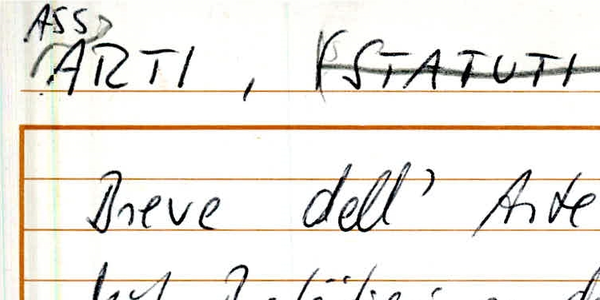 ASS
ARTI, (STATUTI
Breve dell' Arte